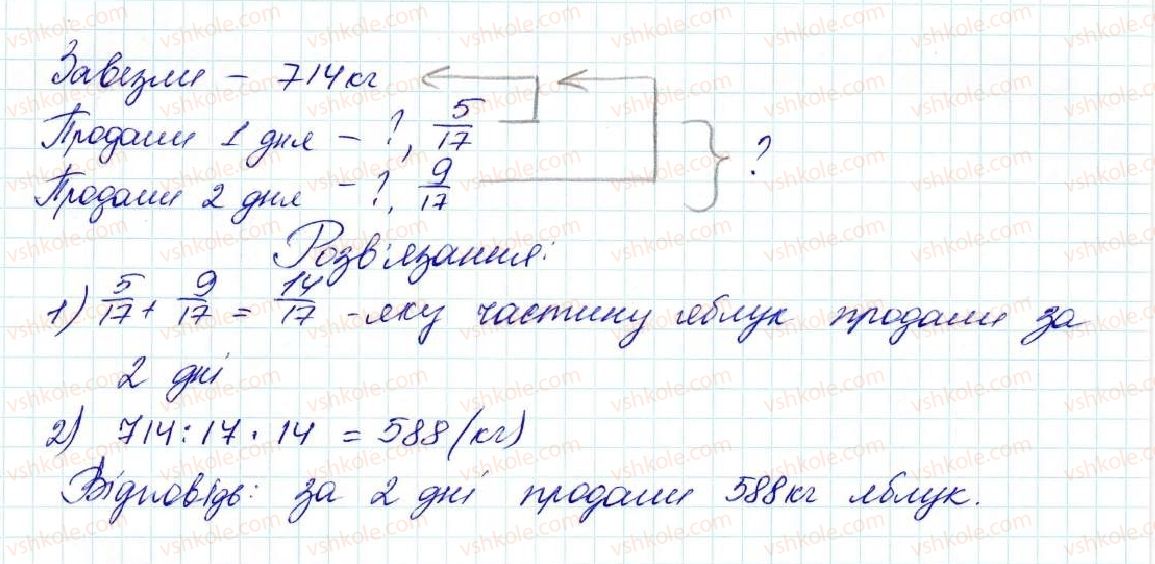 Завезли – 714 кг
Продали 1 дня – ?, 5/17
Продали 2 дня – ?, 9/17 } ?
Розв'язання:
1) 5/17 + 9/17 = 14/17 - яку частину яблук продали за
2 дні
2) 714 : 17 · 14 = 588 (кг)
Відповідь: за 2 дні продали 588 кг яблук.
vshkole.com